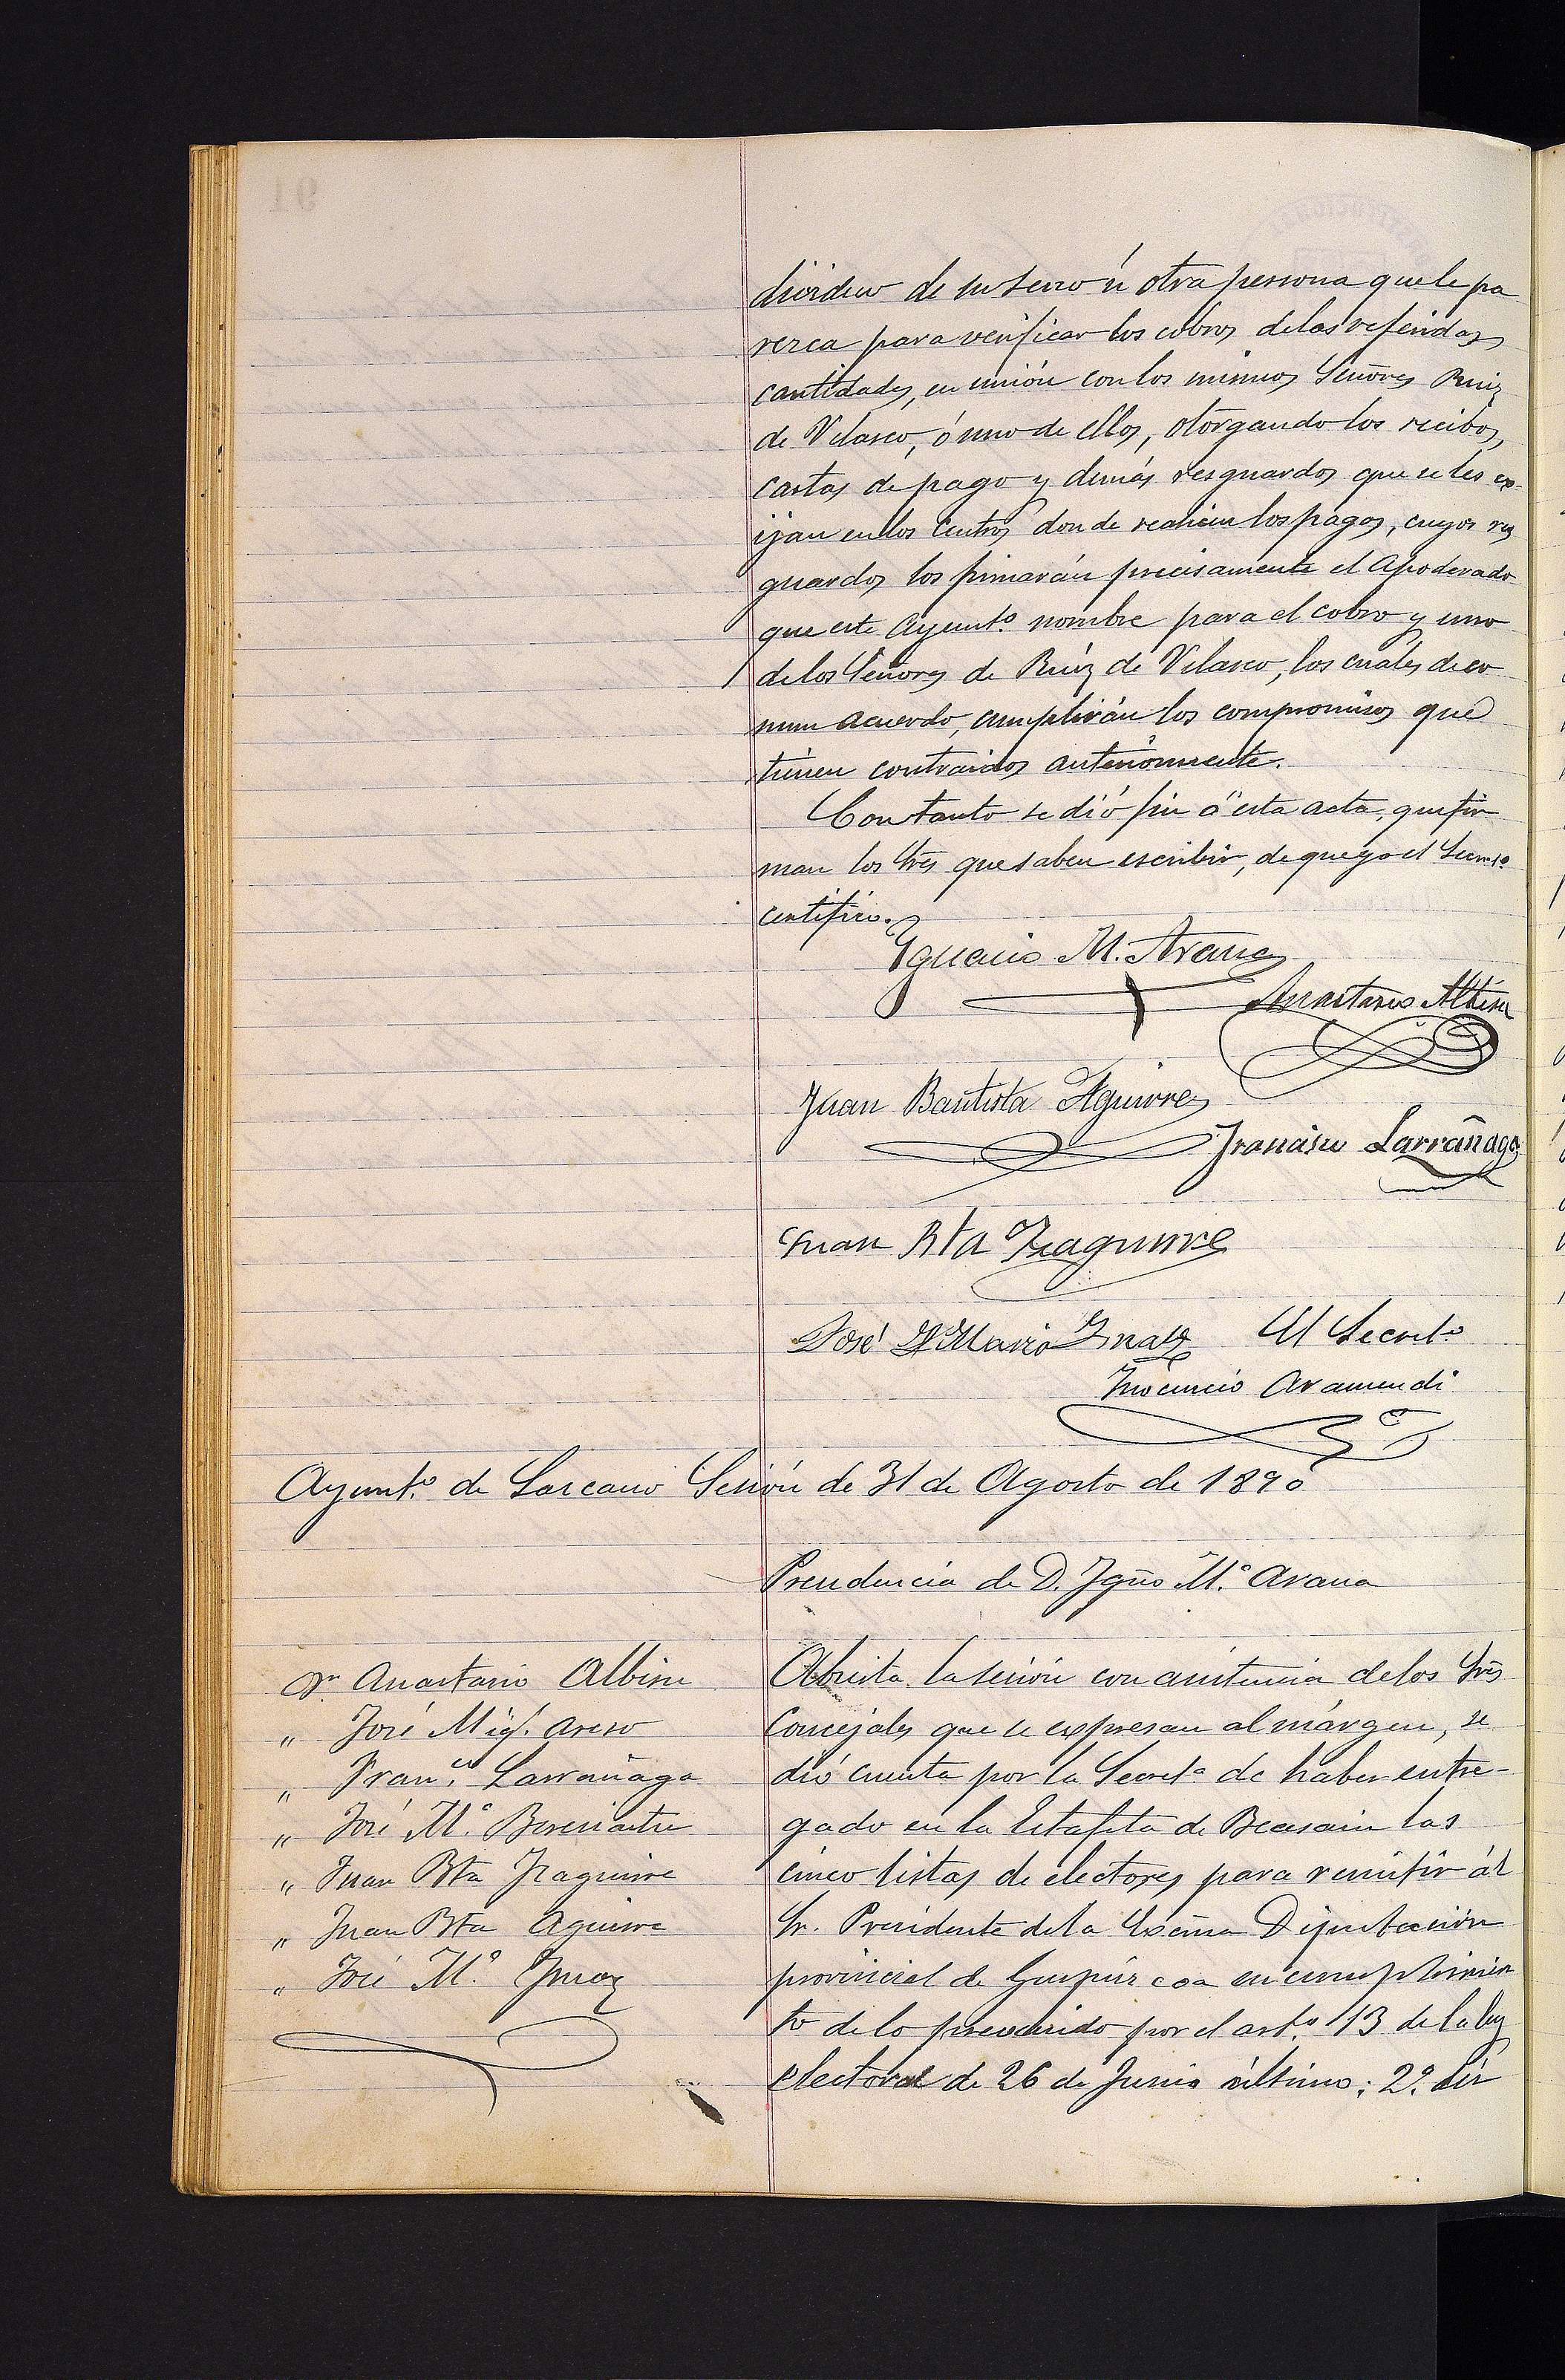 dividuo de su seno ú otra persona que le pa
rezca para verificar los cobros de las referidas
cantidades, en unión con los mismos Señores Ruiz
de Velasco, ó uno de ellos, otorgando los recibos,
cartas de pago y demás resguardos que se les ex-
ijan en los Centros donde realicen los pagos, cuyos res
guardos los firmarán precisamente el Apoderado
que este Ayuntº. nombre para el cobro y uno
de los Señores de Ruiz de Velasco, los cuáles de co
mun acuerdo, cumplirán los compromisos que
tienen contraidos anteriormente.
Con tanto se dió fin á esta acta, que fir
man los Sres que saben escribir, de que yo el Secretº
certifico.
Ygnacio M. Arana
Anastasio Albisu
Juan Bautista Aguirre
Francisco Larrañaga
Juan Bta Yzaguirre
José Maria Ynaz El Secretº
Inocencio Aramendi
Ayuntº. de Lazcano Sesión de 31 de Agosto de 1890
Presidencia de D. Ygno Mª. Arana
Dn Anastasio Albisu
„ José Migl. Areso
„ Franco. Larrañaga
„ José Mª. Beresiartu
„ Juan Bta Yzaguirre
„ Juan Bta Aguirre
„ José Mª. Ynaz
Abierta la sesión con asistencia de los Sres
Concejales que se expresan al márgen, se
dió cuenta por la Secretª de haber entre-
gado en la Estafeta de Beasain las
cinco listas de electores para remitir ál
Sr. Presidente de la Excma Diputación
provincial de Guipúzcoa en cumplimien
to de lo prevenido por el artº. 13 de la ley
electoral de 26 de Junio último; 2º. dis